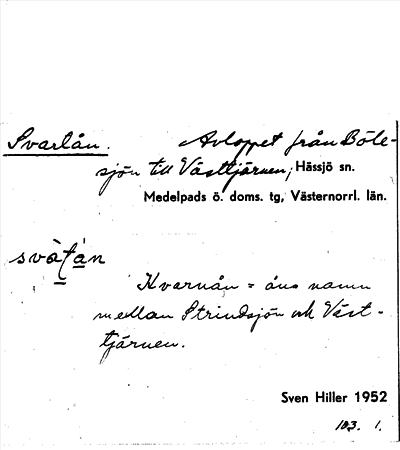 Svarlån. Avloppet från Böle-
sjön till Västtjärnen, Hässjö sn.
Medelpads ö. doms. tg, Västernorrl. län.
Kvarnån = åns namn
mellan Strindsjön och Väst-
tjärnen.
Sven Hiller 1952
103. 1.